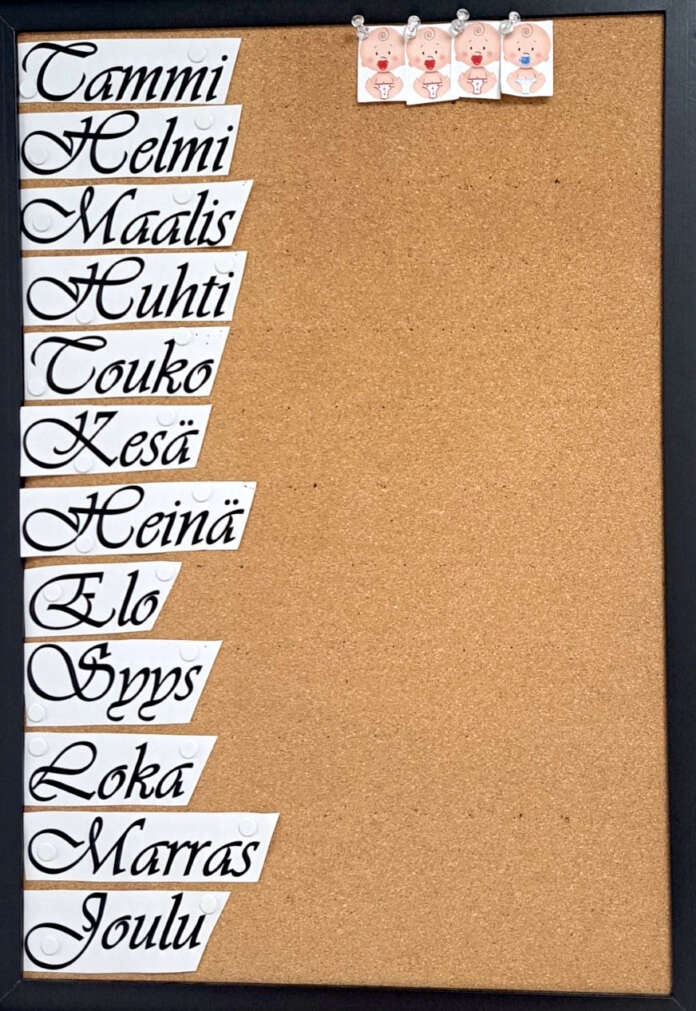 Tammi
Helmi
Maalis
Huhti
Touko
Kesä
Heinä
Elo
Syys
Loka
Marras
Joulu